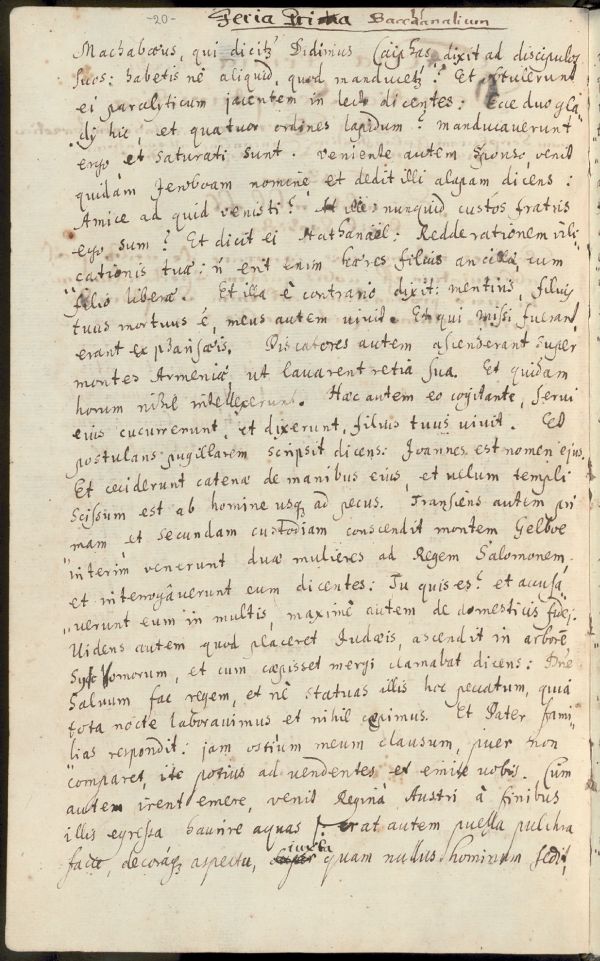 -20-
Feria Prima Bacchanalium
Machabæus, qui dicitʒ Didimus Caiphas dixit ad discipulos
suos: habetis nè aliquid, quod manducetʒ? Et
ei paralyticum jacentem in lecto dicentes: Ecce duo gla„
dij hic, et quatuor ordines lapidum? manducaverunt
ergo et saturati sunt. veniente autem sponso, venit
quidam Jeroboam nomine, et dedit illi alapam dicens:
Amice ad quid venisti? Et ille: nunquid custos fratris
ego sum? Et dicit ei Nathanaël: Redde rationem vili„
cationis tuæ: erit enim hæres filius ancillæ, cum
„filio liberæ. Et illa è contrario dixit: mentiris, filius
tuus mortuus é, meus autem vivit. Et qui missi fuerant
erant ex phariſæis. Piscatores autem ascenderant super
montes Armeniæ, ut lavarent retia sua. Et quidam
horum nihil intellexerunt. Hæc autem eo cogitante, servi
eius cucurrerunt, et dixerunt, filius tuus vivit. Et
postulans pugillarem scripsit dicens: Joannes est nomen ejus.
Et ceciderunt catenæ de manibus eius, et uelum templi
scissum est ab homine usqʒ ad pecus. Transiens autem pri
mam et secundam custodiam conscendit montem Gelboe
interim venerunt duæ mulieres ad Regem Salomonem,
et interrogâverunt eum dicentes: Tu quis es? et accusa„
„verunt eum in multis, maximè autem de domesticis fidej.
Uidens autem quod placeret Judæis, ascendit in arborē
Sycomorum, et cum cæpisset mergi clamabat dicens: Dñe
Salvum fac regem, et nè statuas illis hoc peccatum, quia
tota nocte laboravimus et nihil cepimus. Et Pater fami„
„lias respondit: jam ostium meum clausum, puer non
comparet, ite potius ad vendentes et emite vobis. Cum
autem irent emere, venit Regina Austri à finibus
illis egressa haurire aquas erat autem puella pulchra
facie, decoráqʒ aspectu, iuxta quam nullus hominum sedit,